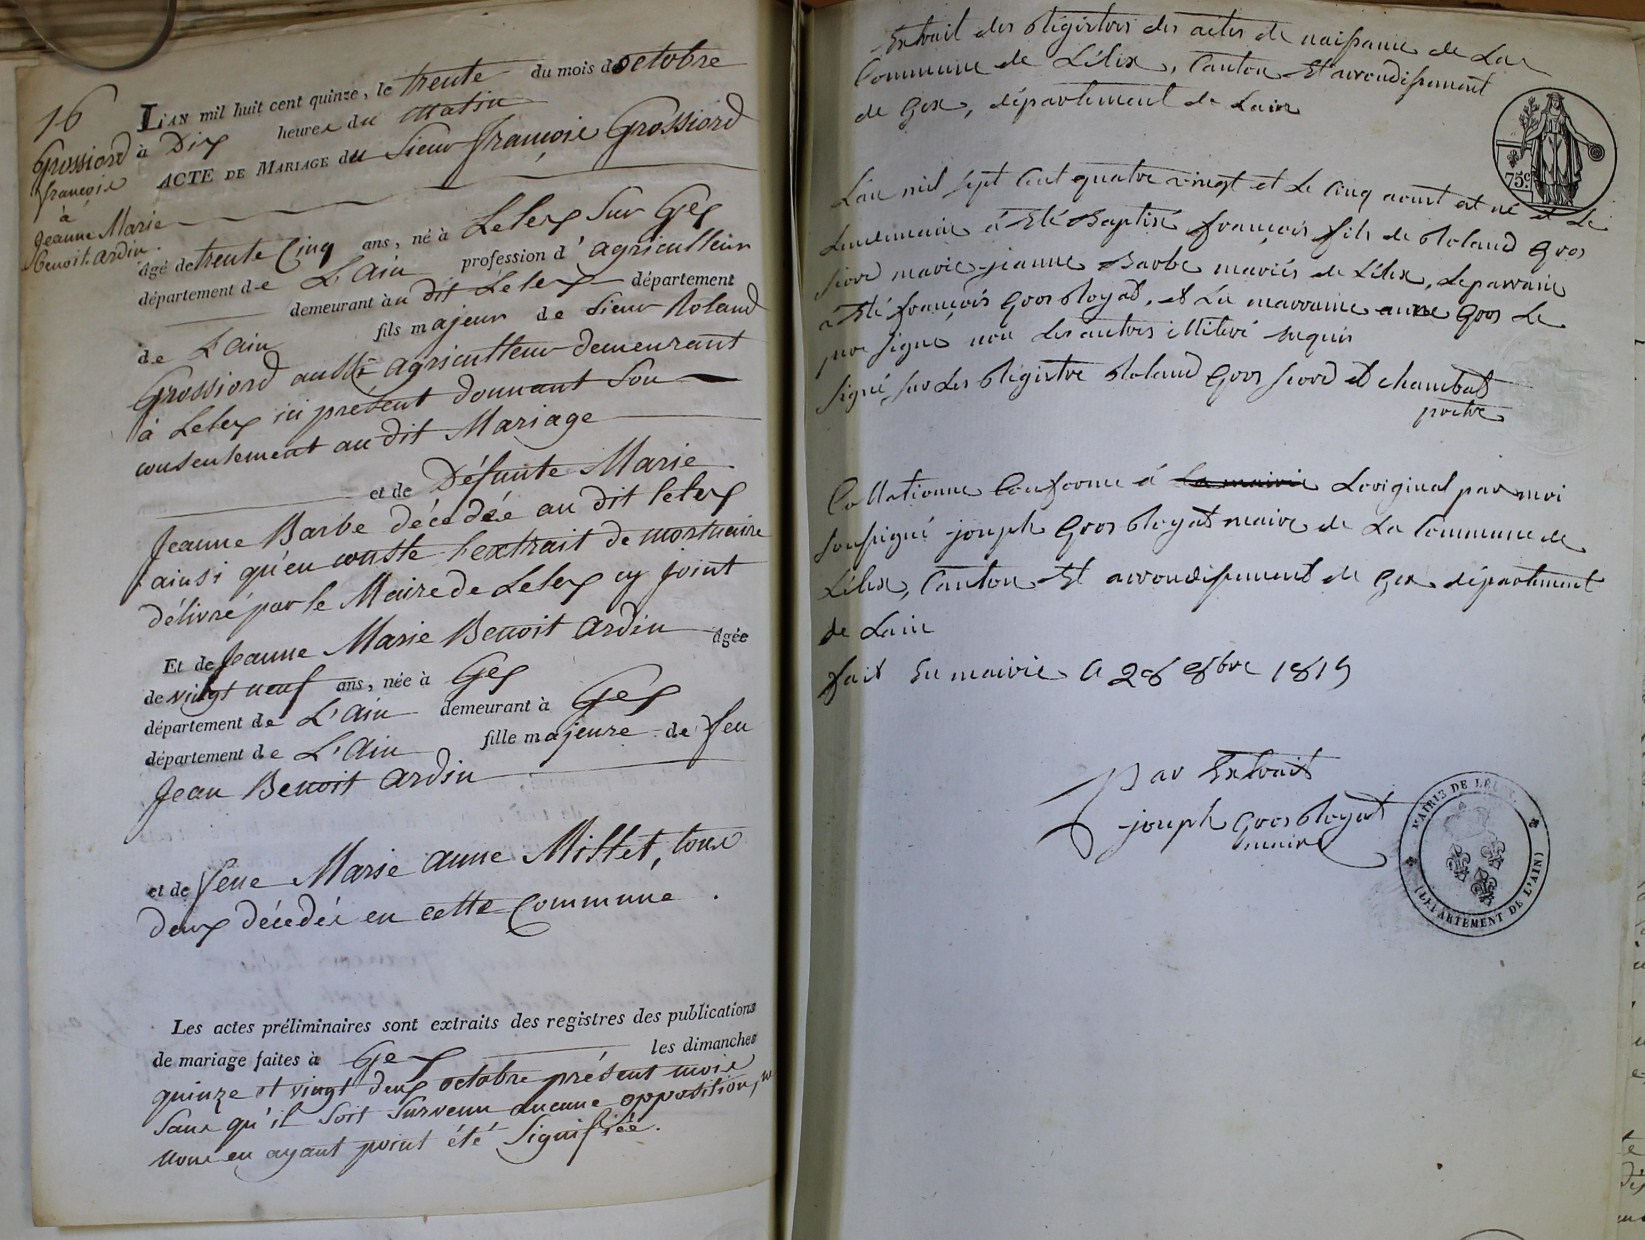 16
Grossiord
françois
à
Jeanne Marie
Benoit. ardin.
L'AN mil huit cent quinze, le trente du mois d octobre
à Dix heures du Matin
ACTE DE MARIAGE du Sieur françois Grossiord
âgé de trente Cinq ans, né à Lelex sur Gex
département de L'Ain profession d' agriculteur
demeurant au dit Lelex département
de L'ain fils majeur de Sieur Roland
Grossiord aussi agriculteur demeurant
à Lelex ici présent donnant son
consentement au dit Mariage
et de Défunte Marie
Jeanne Barbe décédée au dit lelex
ainsi qu'en conste l'extrait de mortuaire
délivré par le Maire de Lelex cy joint
Et de Jeanne Marie Benoit ardin âgée
de vingt neuf ans, née à Gex
département de L'Ain demeurant à Gex
département de L'Ain fille majeure de feu
Jean Benoit ardin
et de feue Marie anne Millet, tous
deux décédés en cette Commune.
Les actes préliminaires sont extraits des registres des publications
de mariage faites à Gex les dimanches
quinze et vingt deux octobre présent mois
sans qu'il soit survenu aucune opposition,
nous en ayant point été signifiée.
Extrait des Régistres des actes de naissance de La
Commune de Lélex, Canton Et arrondissement
de Gex, département de Lain
75c.
Lan mil sept Cent quatre vingt et Le Cinq aoust est né et Le
Lendemain à Eté Baptisé françois fils de Roland Gros
siord marie jeanne Barbe mariés de Lélex, Le parrain
à Eté françois Gros Royat, et La marraine anne Gros Le
pre signé non Les autres illitéré enquis
Signé sur Les Régistre Roland Gros siord et chambat
pretre
Collationné Conforme à la mairie Loriginal par moi
soussigné joseph Gros Royat maire de La Commune de
Lélex, Canton Et arrondissement de Gex département
de Lain
fait En mairie a 28 8bre 1815
Par Extrait
joseph Gros Royat
maire
MAIRIE DE LÉLEX.
(DÉPARTEMENT DE L'AIN)